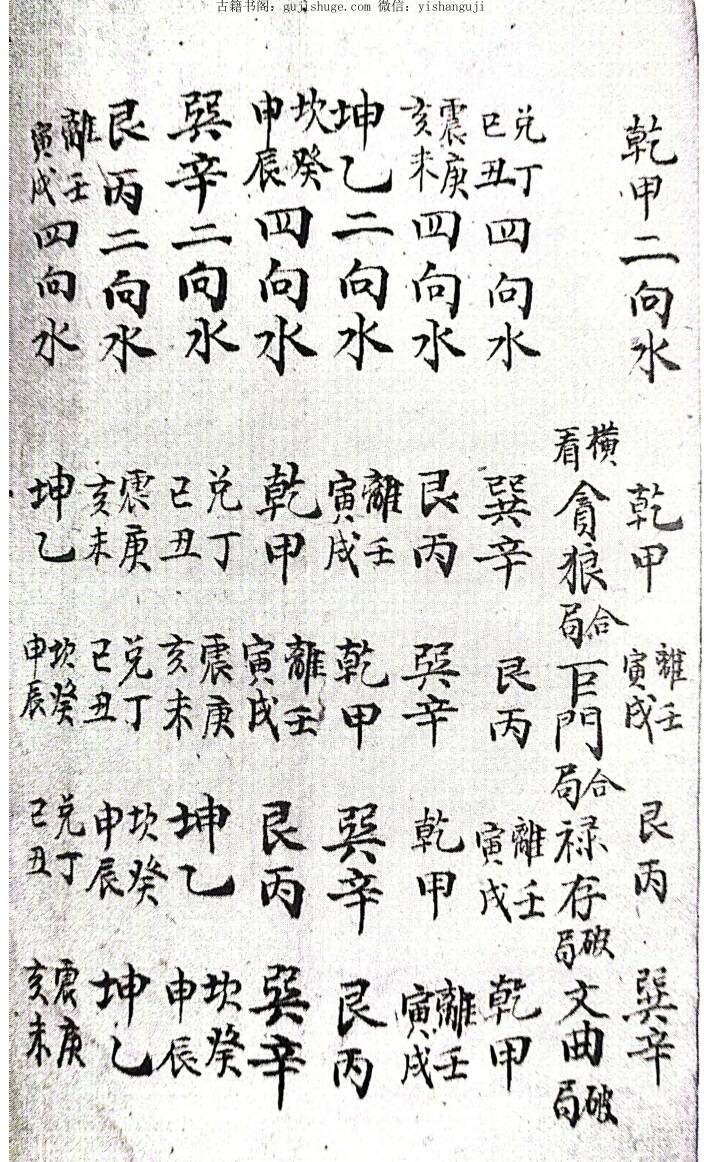 古籍书阁：gujishuge.com 微信：yishanguji
乾甲二向水 乾甲 離壬寅戌 艮丙 巽辛
橫看 貪狼合局 巨門合局 禄存破局 文曲破局
兌丁巳丑四向水 巽辛 艮丙 離壬寅戌 乾甲
震庚亥未四向水 艮丙 巽辛 乾甲 離壬寅戌
坤乙二向水 離壬寅戌 乾甲 巽辛 艮丙
坎癸申辰四向水 乾甲 離壬寅戌 艮丙 巽辛
巽辛二向水 兌丁巳丑 震庚亥未 坤乙 坎癸申辰
艮丙二向水 震庚亥未 兌丁巳丑 坎癸申辰 坤乙
離壬寅戌四向水 坤乙 坎癸申辰 兌丁巳丑 震庚亥未